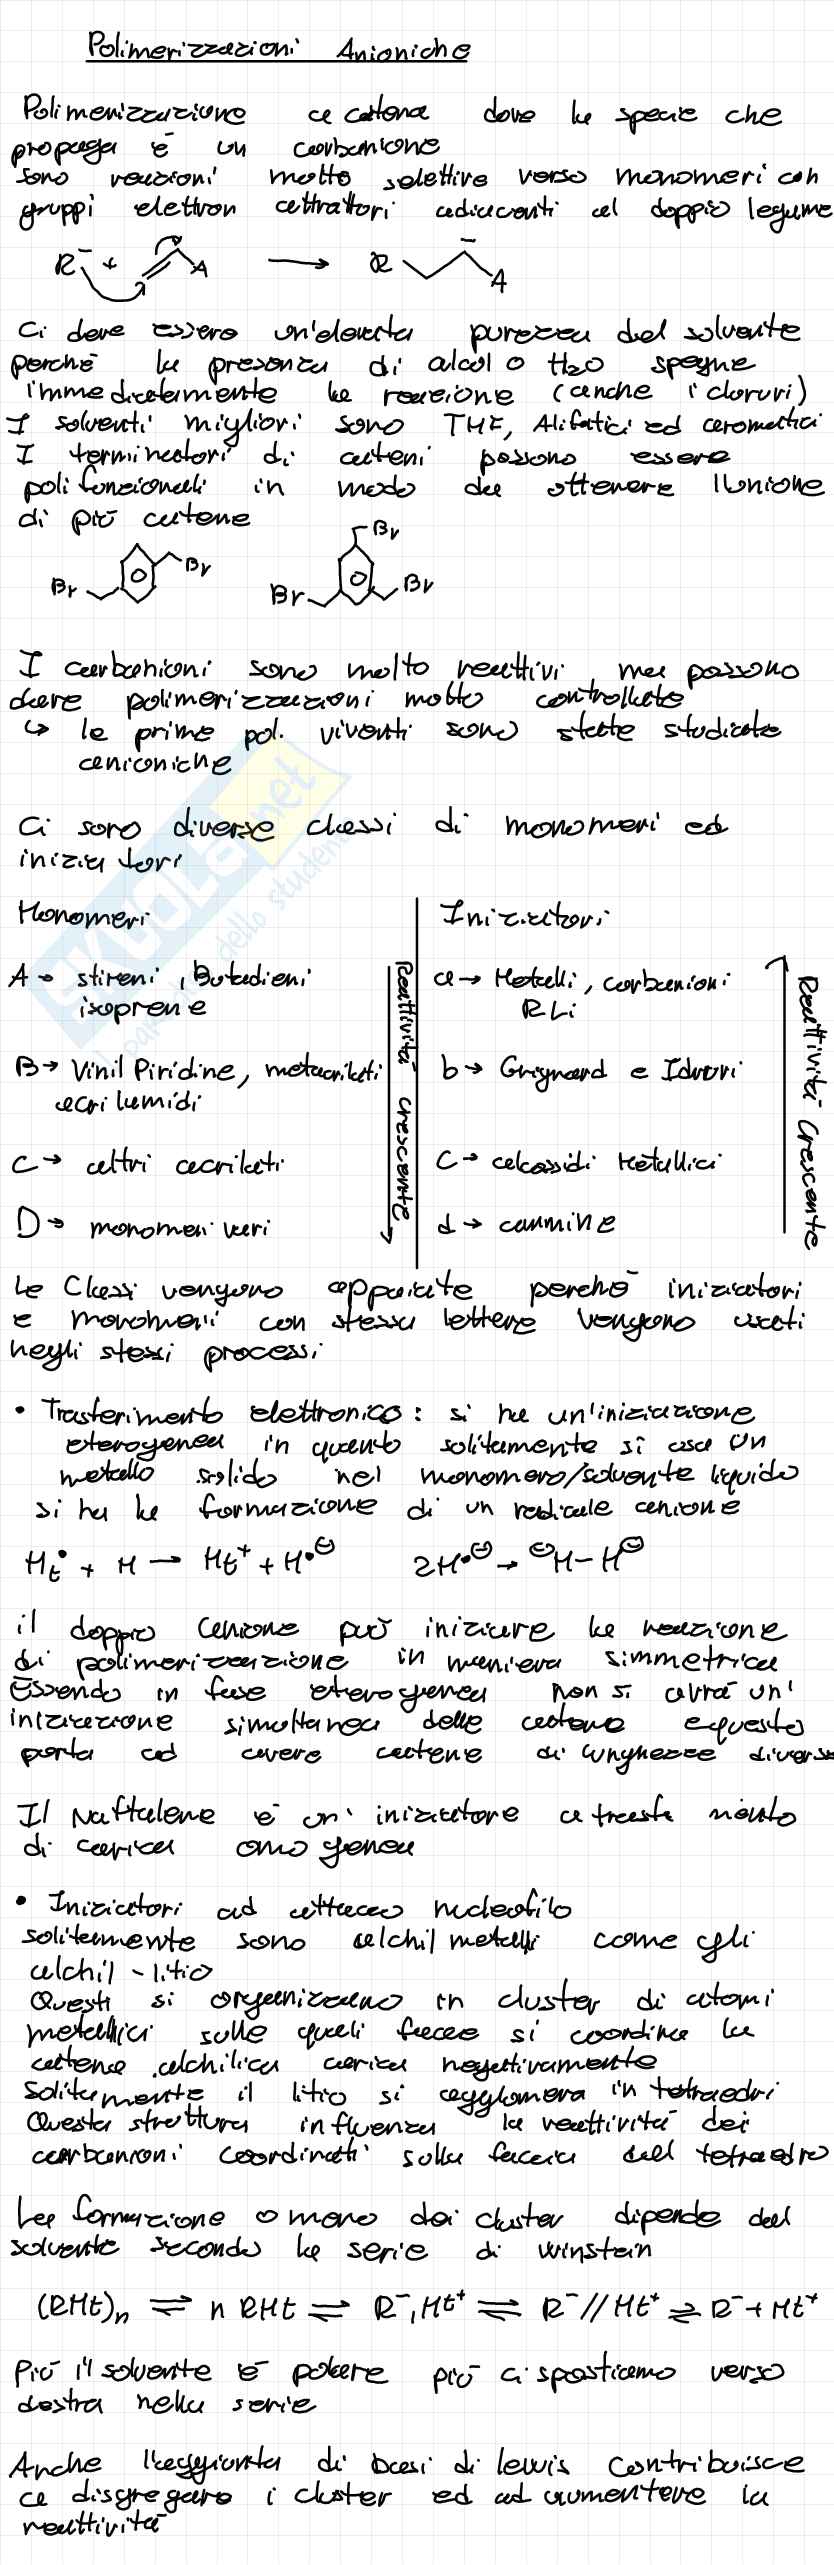 Polimerizzazioni Anioniche
Polimerizzazione a catena dove la specie che
propaga è un carbanione
sono reazioni molto selettive verso monomeri con
gruppi elettron attrattori adiacenti al doppio legame
R⁻ + A → R A
Ci deve essere un'elevata purezza del solvente
perché la presenza di alcol o H2O spegne
immediatamente la reazione (anche i cloruri)
I solventi migliori sono THF, Alifatici ed aromatici
I terminatori di catene possono essere
polifunzionali in modo da ottenere l'unione
di più catene
Br Br Br Br Br
I carbanioni sono molto reattivi ma possono
dare polimerizzazioni molto controllate
↳ le prime pol. viventi sono state studiate
anioniche
Ci sono diverse classi di monomeri ed
iniziatori
Monomeri
A → stireni, Butadieni
isoprene
B → Vinil Piridine, metacrilati
acrilamidi
C → altri acrilati
D → monomeri vari
Reattività crescente
Iniziatori
a → Metalli, carbanioni
RLi
b → Grignard e Idruri
C → alcossidi Metallici
d → ammine
Reattività Crescente
Le Classi vengono appaiate perché iniziatori
e monomeri con stessa lettere vengono usati
negli stessi processi
• Trasferimento elettronico: si ha un'iniziazione
eterogenea in quanto solitamente si usa un
metallo solido nel monomero/solvente liquido
si ha la formazione di un radicale anione
Mt• + M → Mt⁺ + M•⊖ 2M•⊖ → ⊖M-M⊖
il doppio anione può iniziare la reazione
di polimerizzazione in maniera simmetrica
Essendo in fase eterogenea non si avrà un'
iniziazione simultanea delle catene e questo
porta ad avere catene di lunghezze diverse
Il Naftalene è un' iniziatore a trasferimento
di carica omogenea
• Iniziatori ad attacco nucleofilo
solitamente sono alchil metalli come gli
alchil-litio
Questi si organizzano in cluster di atomi
metallici sulle quali facce si coordina la
catena alchilica carica negativamente
Solitamente il litio si agglomera in tetraedri
Questa struttura influenza la reattività dei
carbanioni coordinati sulla faccia del tetraedro
La formazione o meno dei cluster dipende dal
solvente secondo la serie di Winstein
(RMt)n ⇌ n RMt ⇌ R⁻,Mt⁺ ⇌ R⁻//Mt⁺ ⇌ R⁻+Mt⁺
Più il solvente è polare più ci spostiamo verso
destra nella serie
Anche l'aggiunta di basi di lewis contribuisce
a disgregare i cluster ed ad aumentare la
reattività